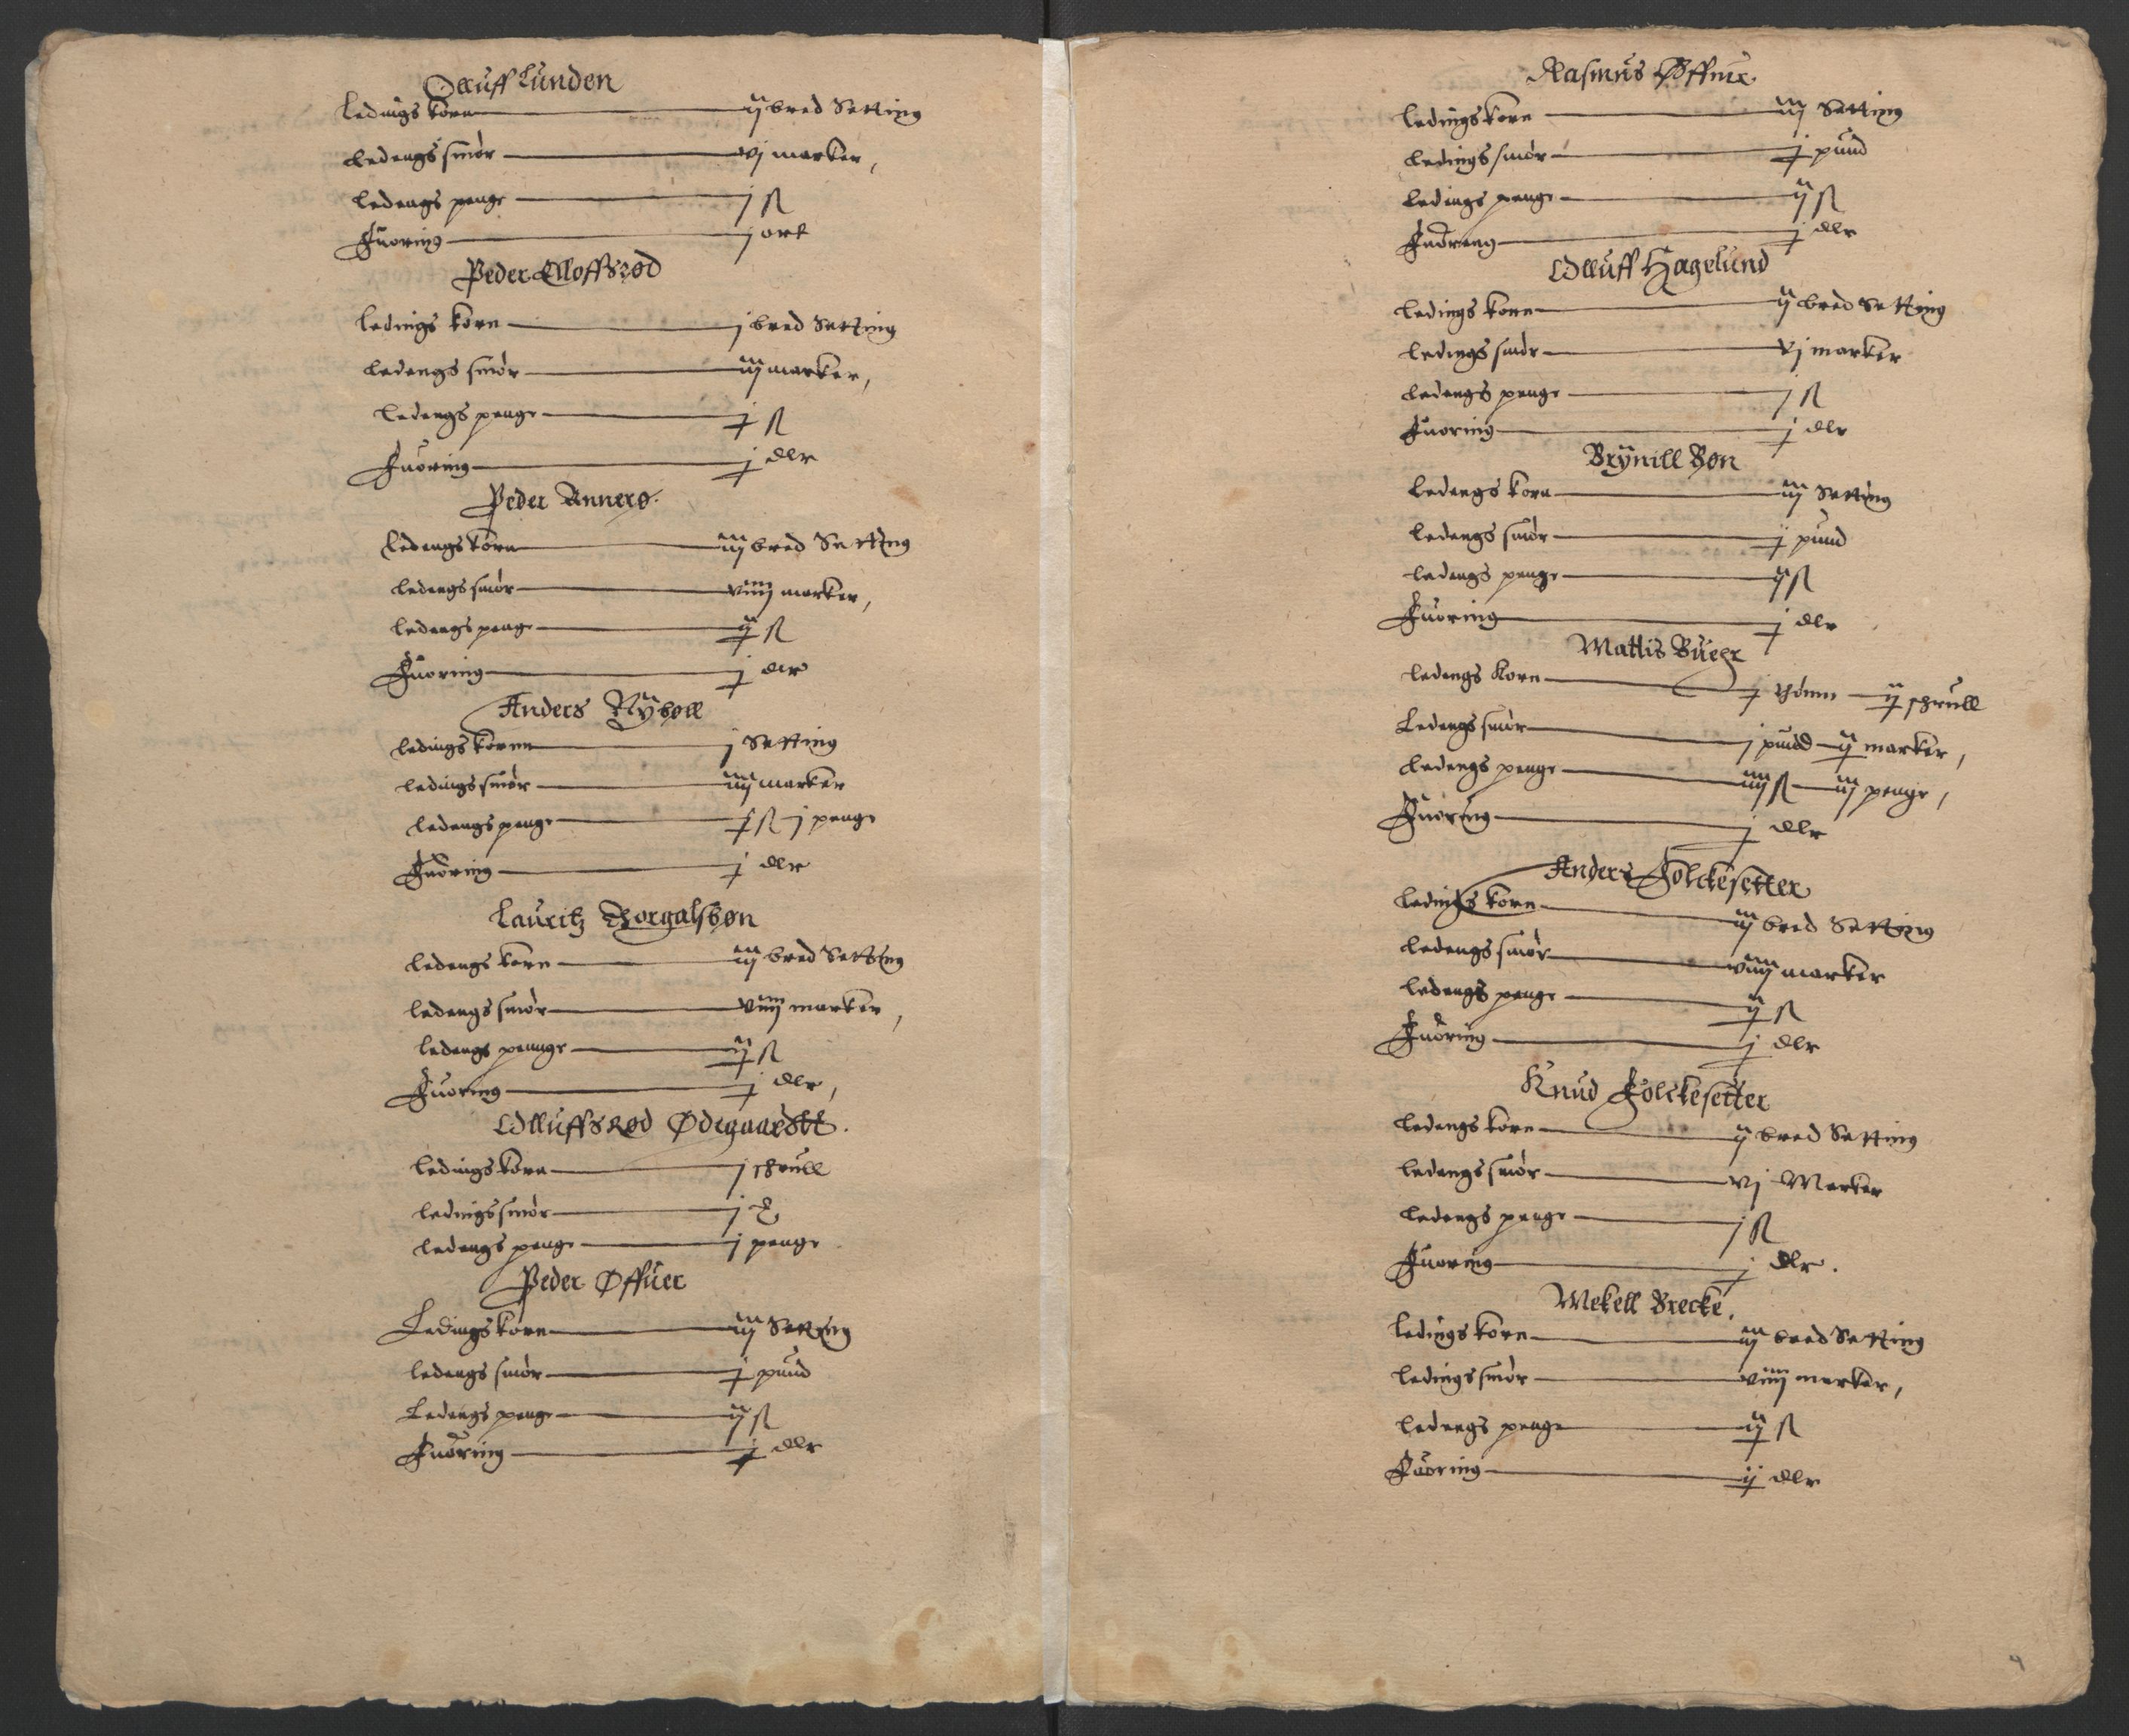 Olluff Lunden
Ledings korn — ij bred Setting
Ledengs smør — vj marker,
Ledengs penge — j ß
Fuoring — j ort
Peder Olloffsrød
Ledings korn — j bred Setting
Ledengs smør — iij marker,
Ledengs penge — j ß
Fuoring — j dlr
Peder Annerø.
Ledengs korn — iij bred Setting
Ledengs smør — viiij marker,
Ledengs penge — ij ß
Fuoring — j dlr
Anders Nÿbøll
Ledings kornn — j Setting
Ledings smør — iiij marker
Ledengs penge — j ß j penge
Fuoring — j dlr
Lauritz Torgalsbøn
Ledengs korn — iij bred Setting
Ledengs smør — viiij marker,
Ledengs pennge — ij ß
Fuoring — j dlr,
Olluffsrød Ødegaardtt.
Ledings korn — j skrull
Ledings smør — j
Ledengs penge — j penge
Peder Øffuer
Ledings korn — iij Setting
Ledengs smør — j pund
Ledengs penge — ij ß
Fuoring — j dlr
Rasmus Øffuer
Ledings korn — iij Setting
Ledings smør — j pund
Ledings penge — ij ß
Fuoreng — j dlr
Olluff Hagelund
Ledings konn — ij bred Setting
Ledings smør — vj marker
Ledengs penge — j ß
Fuoring — j dlr
Brÿnill Bøn
Ledengs korn — iij Setting
Ledengs smør — j pund
Ledengs penge — ij ß
Fuoring — j dlr
Mattis Bueer
Ledengs Korn — j thønn — ij skrull
Ledengs smør — j pund — ij marker,
Ledengs penge — iiij ß — iij penge,
Fuoring — j dlr
Anders Folckesetter
Ledings korn — iij bred Setting
Ledengs smør — viiij marker
Ledengs penge — ij ß
Fuoring — j dlr
Knud Folckesetter
Ledengs korn — ij bred Setting
Ledengs smør — vj Marker
Ledengs penge — j ß
Fuoring — j dlr.
Mekell Brecke.
Ledings korn — iij bred Setting
Ledings smør — viiij marker,
Ledengs penge — ij ß
Fuoring — ij dlr
4